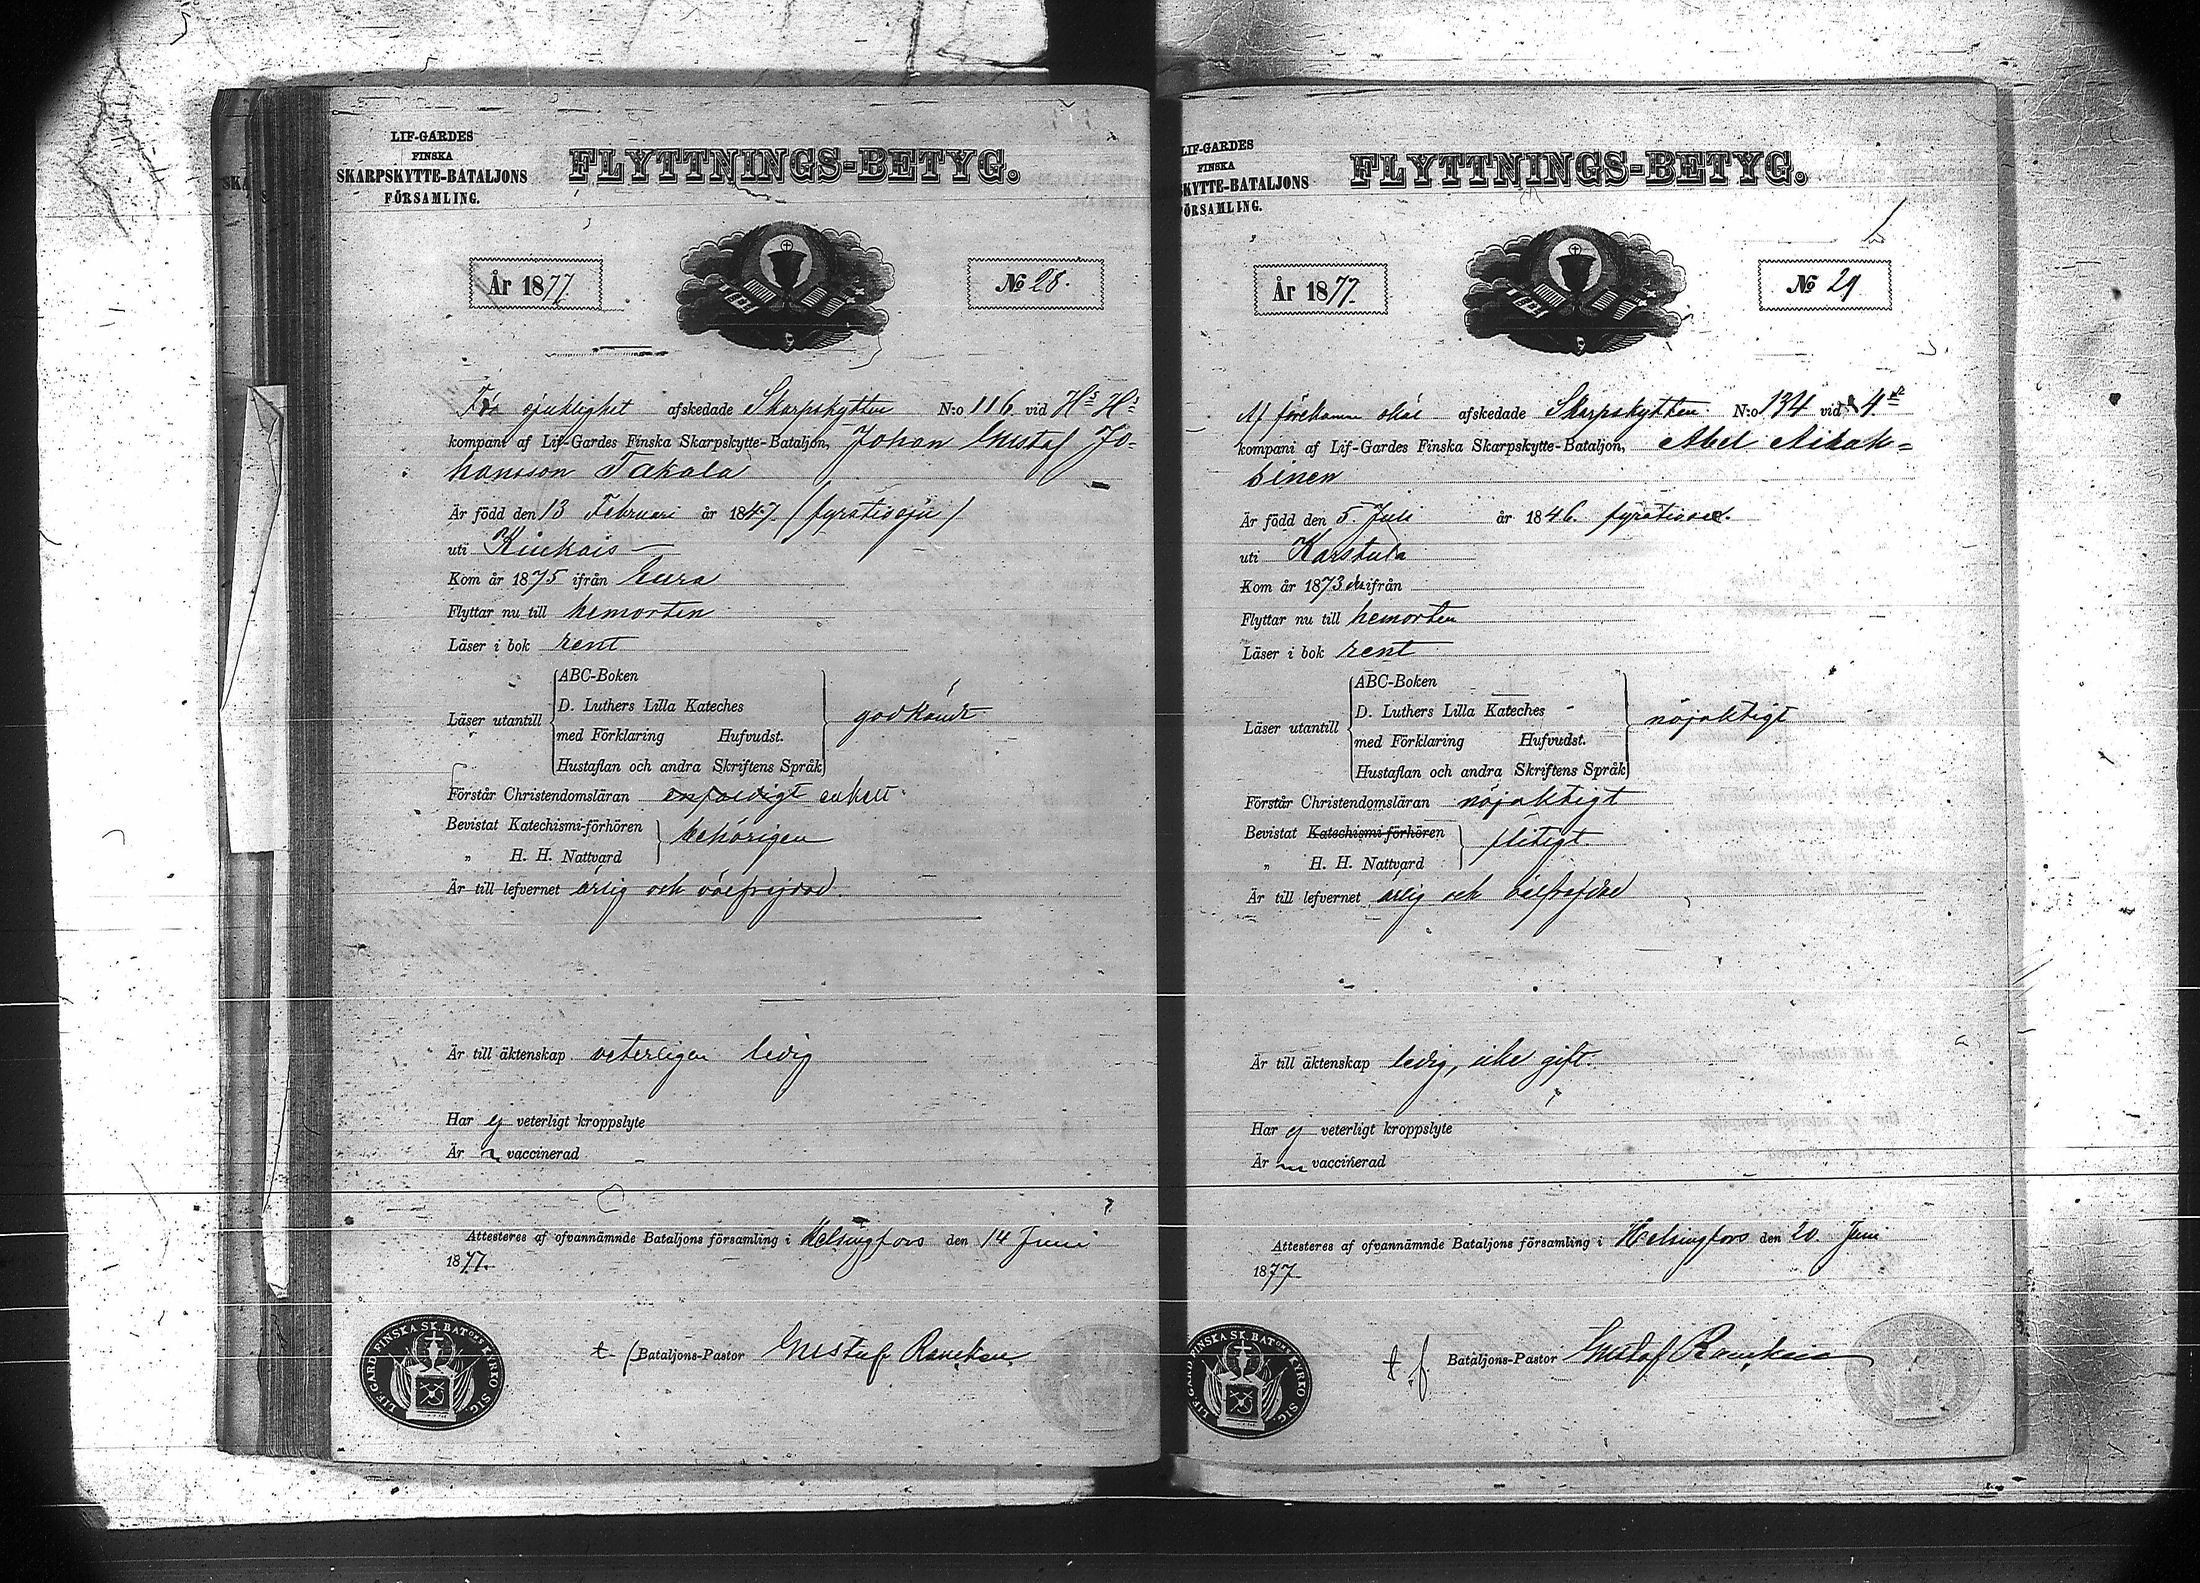 LIF-GARDES
FINSKA
SKARPSKYTTE-BATALJONS
FÖRSAMLING.
FLYTTNINGS-BETYG.
År 1877
No 28.
För sjuklighet afskedade Skarpskytten N:o 116 vid Hs Hs
kompani af Lif-Gardes Finska Skarpskytte-Bataljon, Johan Gustaf Jo-
hansson Takala
Är född den 13 Februari år 1847 (fyratiosju)
uti Kiukais
Kom år 1875 ifrån Eura
Flyttar nu till hemorten
Läser i bok rent
Läser utantill
ABC-Boken
D. Luthers Lilla Kateches
med Förklaring Hufvudst.
Hustaflan och andra Skriftens Språk
godkändt
Förstår Christendomsläran enfaldigt enkelt
Bevistat Katechismi-förhören
„ H. H. Nattvard
behörigen
Är till lefvernet ärlig och välfrejdad.
Är till äktenskap veterligen ledig
Har ej veterligt kroppslyte
Är vaccinerad
Attesteres af ofvannämnde Bataljons församling i Helsingfors den 14 Juni
1877.
t. f. Bataljons-Pastor Gustaf Rancken.
LIF-GARD FINSKA SK. BATONS KYRKO SIG
LIF-GARDES
FINSKA
SKYTTE-BATALJONS
FÖRSAMLING.
FLYTTNINGS-BETYG.
År 1877
No 29
Af förekomne skäl afskedade Skarpskytten N:o 134 vid 4de
kompani af Lif-Gardes Finska Skarpskytte-Bataljon, Abel Aikak=
sinen
Är född den 5 Juli år 1846. fyratiosex.
uti Karstula
Kom år 1873 ifrån
Flyttar nu till hemorten
Läser i bok rent
Läser utantill
ABC-Boken
D. Luthers Lilla Kateches
med Förklaring Hufvudst.
Hustaflan och andra Skriftens Språk
nöjaktigt
Förstår Christendomsläran nöjaktigt
Bevistat Katechismi-förhören
„ H. H. Nattvard
flitigt.
Är till lefvernet ärlig och välfrejdad
Är till äktenskap ledig, icke gift.
Har ej veterligt kroppslyte
Är vaccinerad
Attesteres af ofvannämnde Bataljons församling i Helsingfors den 20 Juni
1877
t. f. Bataljons-Pastor Gustaf Rancken
LIF-GARD FINSKA SK. BATONS KYRKO SIG